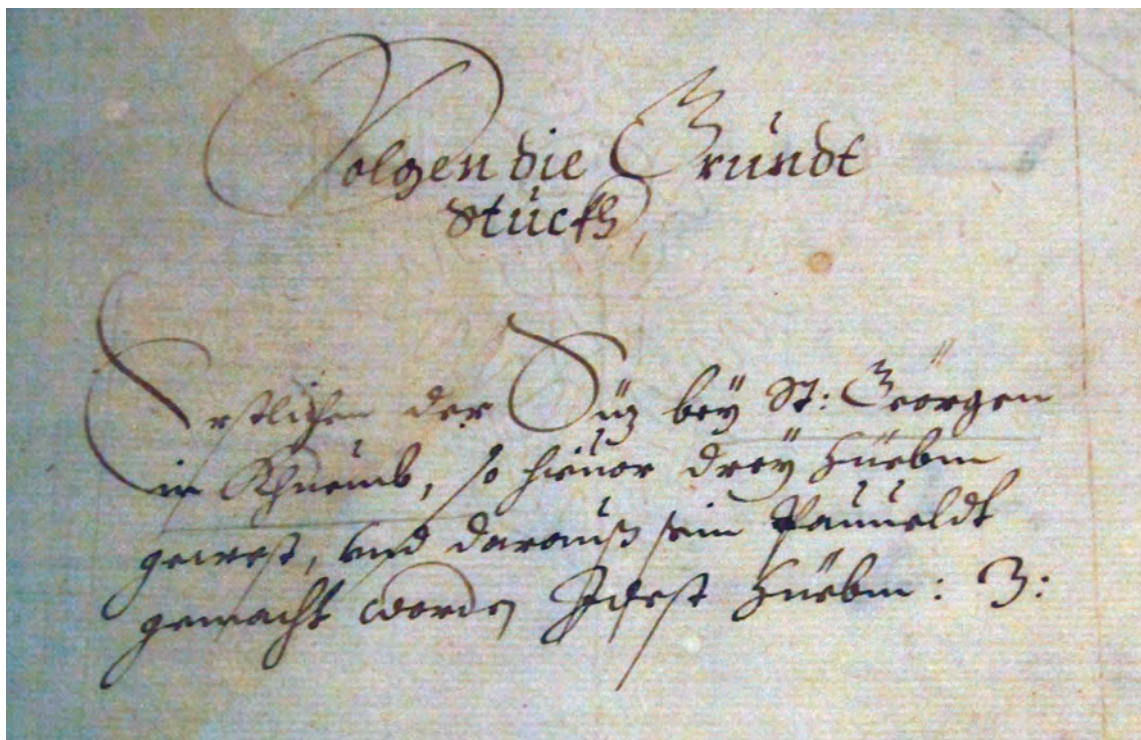 Volgen die Gründt
stückh,
Erstlichen der Siz beÿ St: Geörgen
in Khneüb, so hieuor dreÿ Hüebm
gewest, vnd darauß sein Paúueldt
gemacht worden Idest Hüebm: 3: